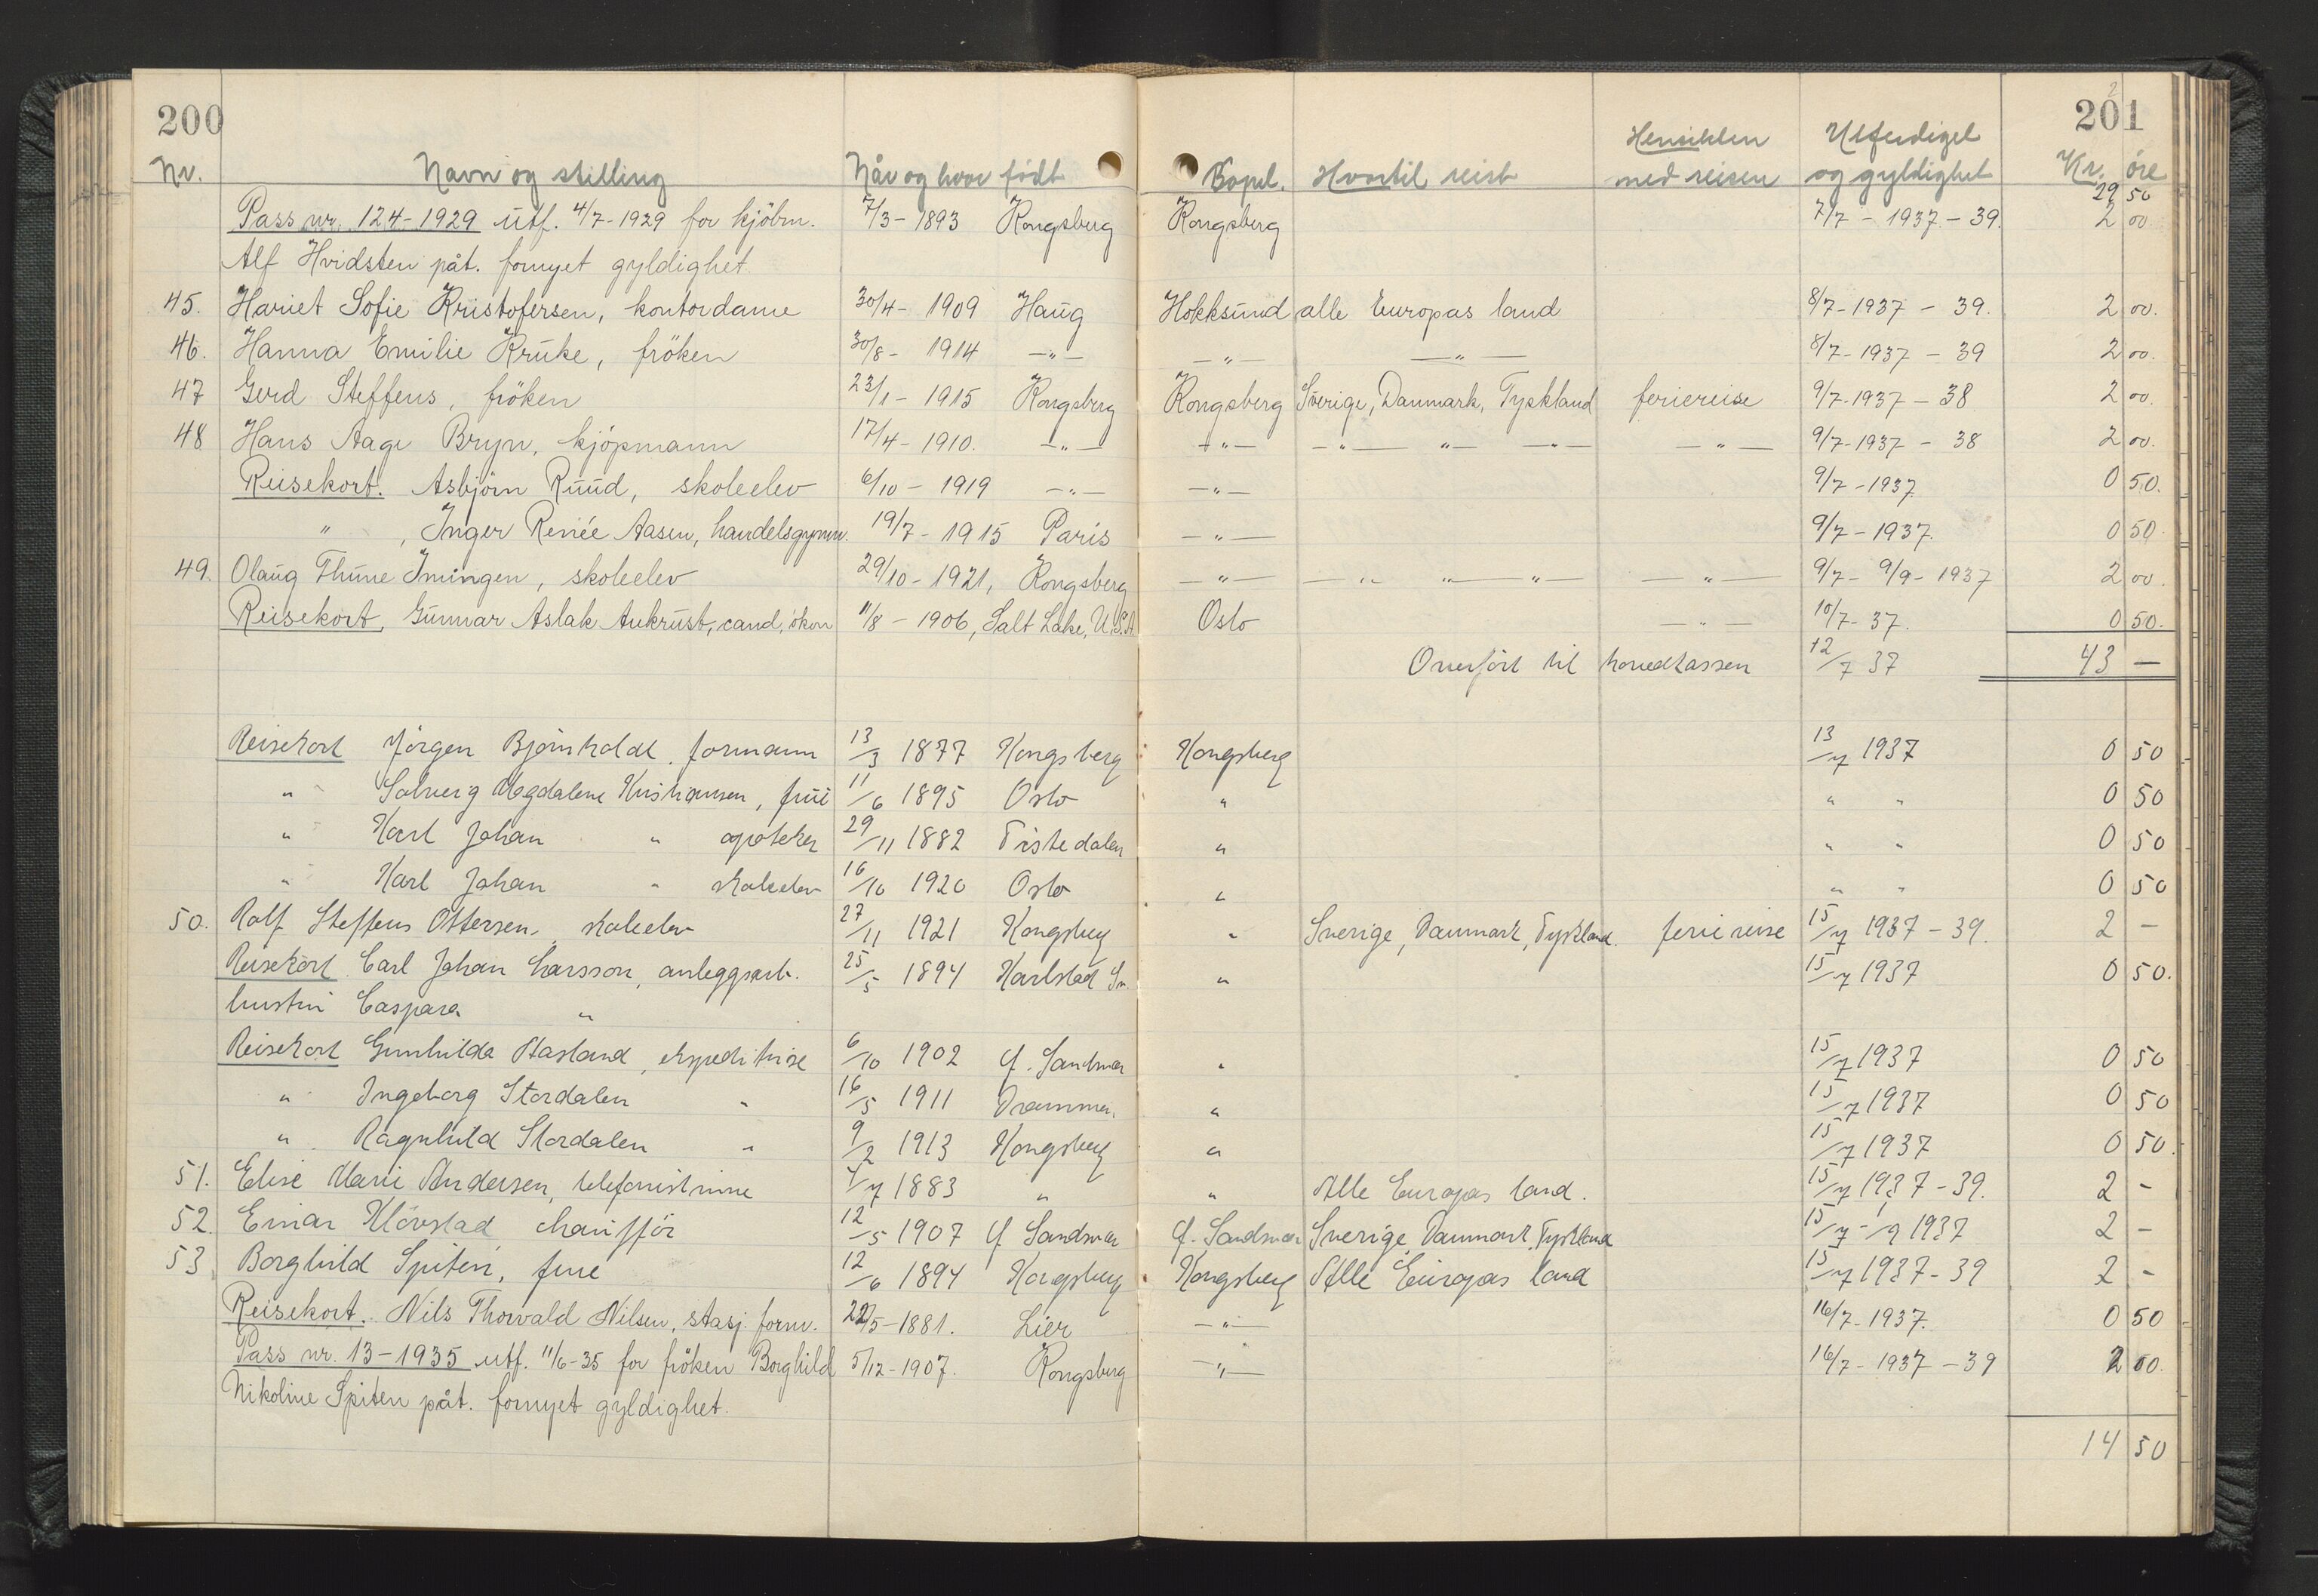 200
201
2
Nr. Navn og stilling Når og hvor født Bopel. Hvortil reist Hensikten med reisen Utferdiget og gyldighet Kr. øre
29 50
Pass nr. 124-1929 utf. 4/7-1929 for kjöbm. 7/3-1893 Kongsberg Kongsberg 7/7-1937-39. 2 00
Alf Hvidsten påt. fornyet gyldighet
45. Hariet Sofie Kristofersen, kontordame 30/4-1909 Haug Hokksund alle Europas land 8/7-1937-39. 2 00.
46. Hanna Emilie Kruke, fröken 30/8-1914 -"- -"- -"- 8/7-1937-39 2 00.
47 Gerd Steffens, fröken 23/1-1915 Kongsberg Kongsberg Sverige, Danmark, Tyskland feriereise 9/7-1937-38 2 00.
48 Hans Aage Bryn, kjöpmann 17/4-1910. -"- -"- -"- "- -"- -"- 9/7-1937-38 2 00.
Reisekort. Asbjörn Ruud, skoleelev 6/10-1919 -"- -"- 9/7-1937 0 50.
" , Inger Renée Aasen, handelsgymn. 19/7-1915 Paris -"- 9/7-1937. 0 50
49. Olaug Thune Imingen, skoleelev 29/10-1921, Kongsberg -"- -"- "- "- -"- 9/7-9/9-1937 2 00.
Reisekort, Gunnar Aslak Aukrust, cand. ökon 11/8-1906, Salt Lake, U.S.A. Oslo -"- 10/7-37. 0 50.
Overfört til hovedkassen 12/7 37 43 —
Reisekort Jörgen Björnholdt formann 13/3 1877 Kongsberg Kongsberg 13/7 1937 0 50
" Solveig Magdalene Kristiansen, frue 11/6 1895 Oslo " " " 0 50
" Karl Johan " apoteker 29/11 1882 Tistedalen " " " 0 50
" Karl Johan " skoleelev 16/10 1920 Oslo " " " 0 50
50. Rolf Steffens Ottersen, skoleelev 27/11 1921 Kongsberg " Sverige, Danmark, Tyskland. feriereise 15/7 1937-39. 2 -
Reisekort Carl Johan Larsson, anleggsarb. 25/5 1894 Karlstad Sv. " 15/7 1937 0 50.
hustru Caspara "
Reisekort Gunhilda Aasland, ekspeditrise 6/10 1902 Y. Sandsvær " 15/7 1937 0 50
" Ingeborg Stordalen " 16/5 1911 Drammen. " 15/7 1937 0 50
" Ragnhild Stordalen " 9/2 1913 Kongsberg " 15/7 1937 0 50.
51. Elise Marie Andersen, telefonistinne 4/7 1883 " " Alle Europas land. 15/7 1937-39. 2 -
52. Einar Klövstad chauffør 12/5 1907 Y Sandsvær Y. Sandsvær Sverige, Danmark, Tyskland 15/7-1/9 1937 2 -
53 Borghild Spiten, frue 12/6 1894 Kongsberg Kongsberg Alle Europas land 15/7 1937-39 2 -
Reisekort. Nils Thorvald Nilsen, stasj. form. 22/5-1881. Lier -"- 16/7-1937. 0 50
Pass nr. 13-1935 utf. 11/6-35 for fröken Borghild 5/12-1907. Kongsberg -"- 16/7-1937-39 2 00.
Nikoline Spiten påt. fornyet gyldighet.
14 50